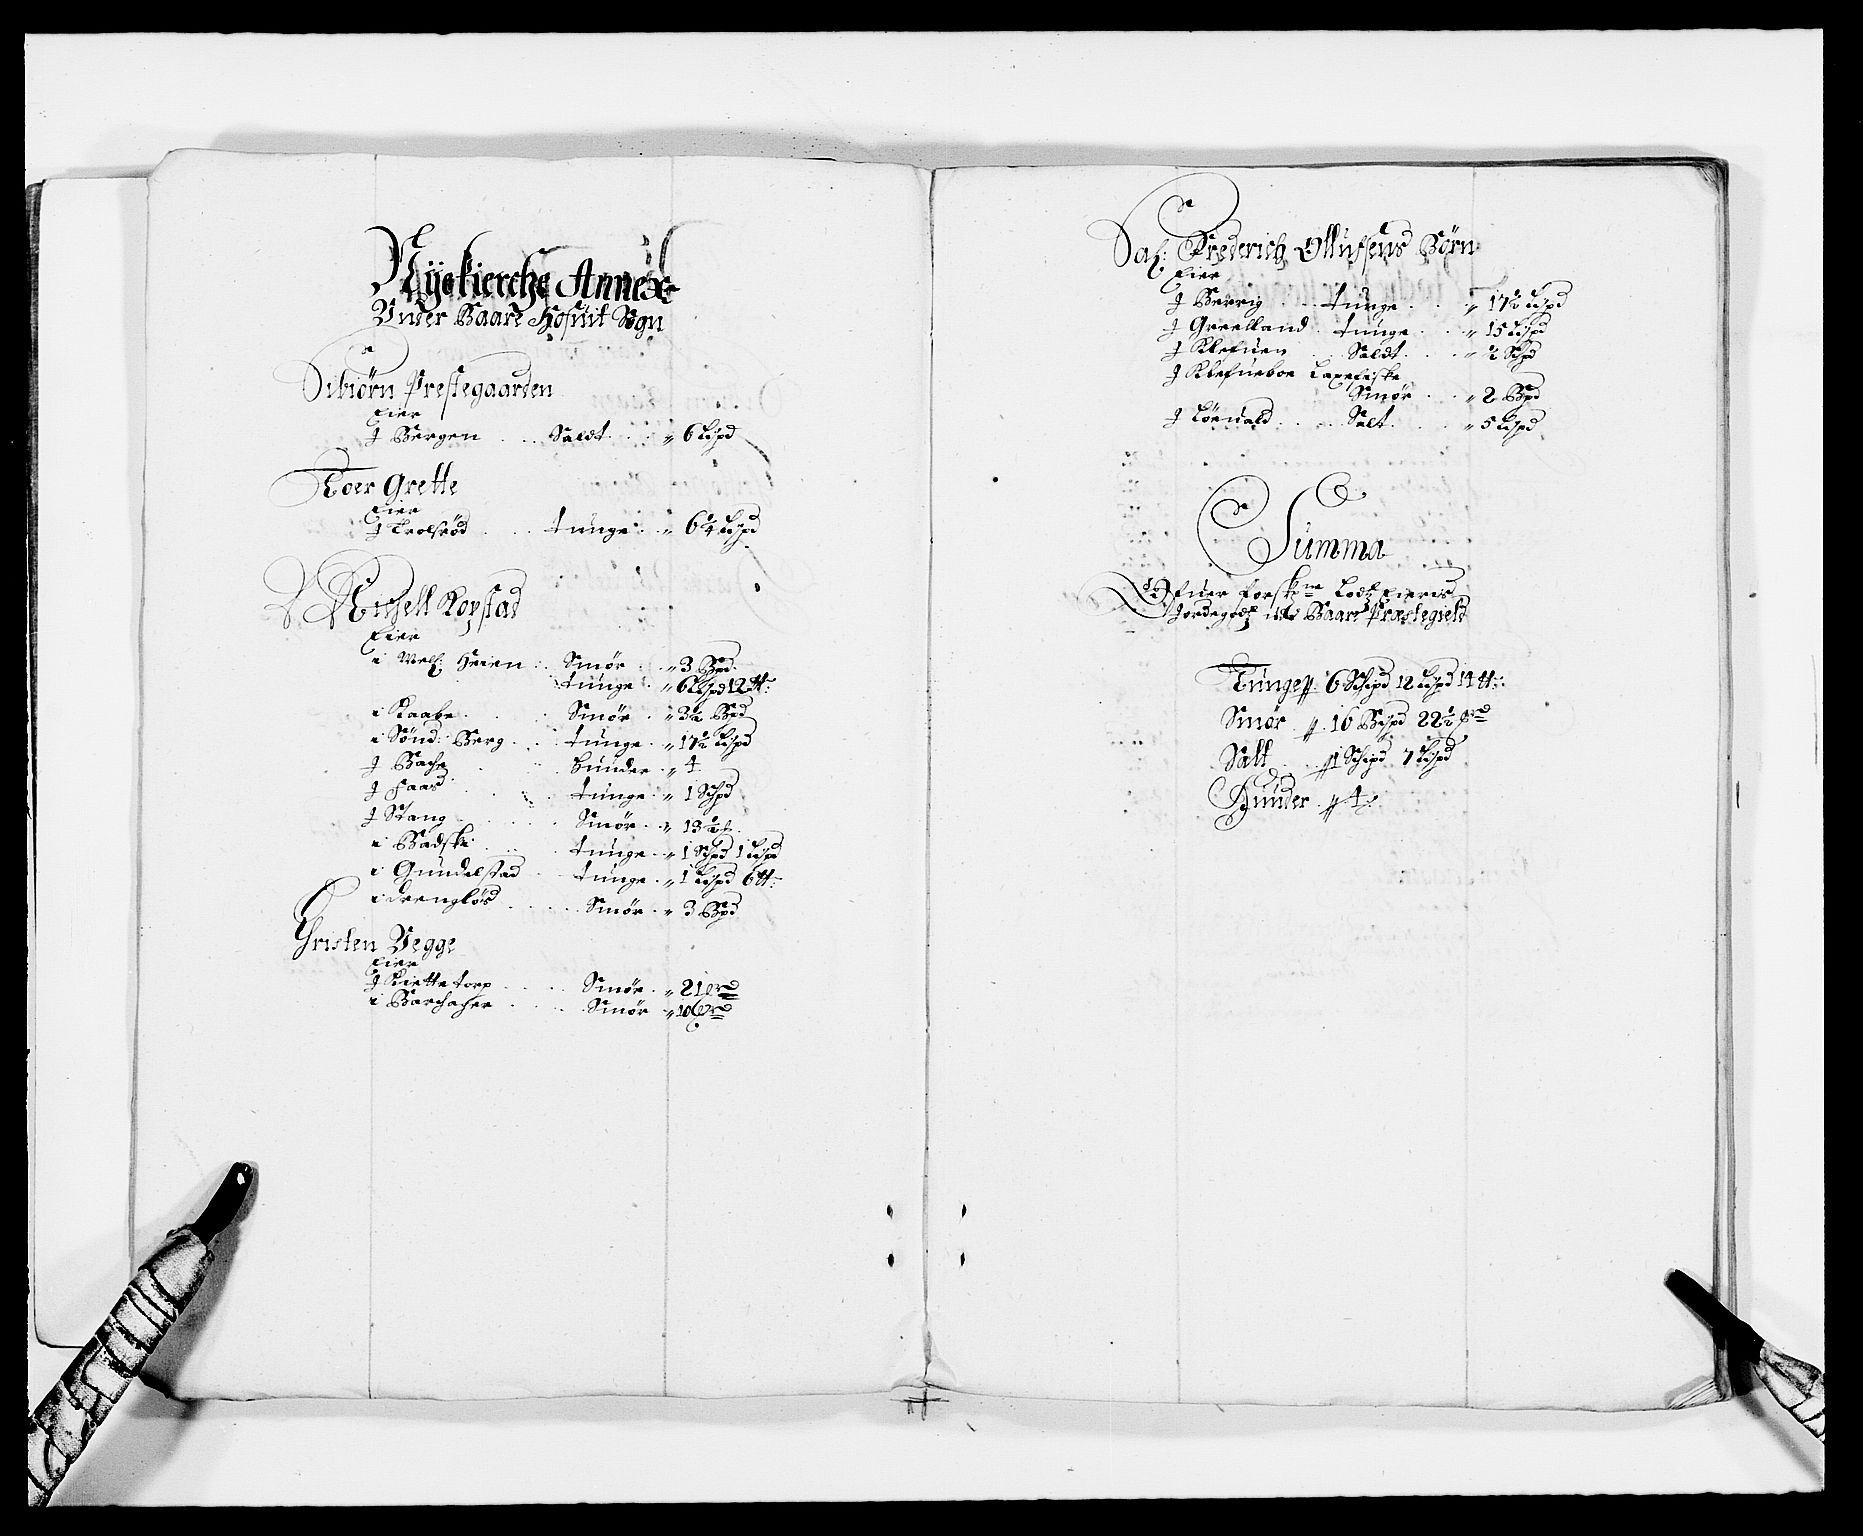 Nyekierche Annex
Under Baare Hofuit Sogn
Sibiørn Prestegaarden
Eier
J Bergen . . . Saldt . . „ 6 Lispd
Roer Grette
Eier
J Trolsrød . . . tunge . „ 6¼ Lispd
Michell Kopstad
Eier
i Mell: Heien . . Smør . . „ 3 Bpd
tunge . „ 6 Lispd 12 ℔:
i Raabe . . . Smør . „ 3½ Bpd
i Sønd: Berg . . . tunge . „ 17½ Lispd
J Bache . . . hunder „ 4
J Faas . . . tunge . „ 1 Schpd
J Stang . . . Smør . „ 13½
i Badske . . . tunge . „ 1 Schpd 1 Lispd
i Gundelstad . . tunge . „ 1 Lispd 6 ℔:
i drengløs . . . Smør . „ 3 Bpd
Christen Vegge
Eier
J Kiettetorp . . . Smør . „ 21
i Barchager . . . Smør . „ 10
Sal: Frederich Ollufsens Børn
Eier
J Berrig . . . tunge . . . „ 17½ Lispd
J Greelland . tunge . . . „ 15 Lispd
J Klefuen . . Saldt . . . „ ½ Schpd
J Klefueboe Laxefiske
Smør . . „ 2 Bpd
J Løeuald . . . Salt . . . „ 5 Lispd
Summa
Ofuer forskne Lodtz Eieris
Jordegodtz udi Baare Præstegield
Tunge „ 6 Schipd 12 Lispd 14 ℔:
Smør „ 16 Bispd 22½
Salt . . „ 1 Schipd 7 Lispd
Huuder . „ 4